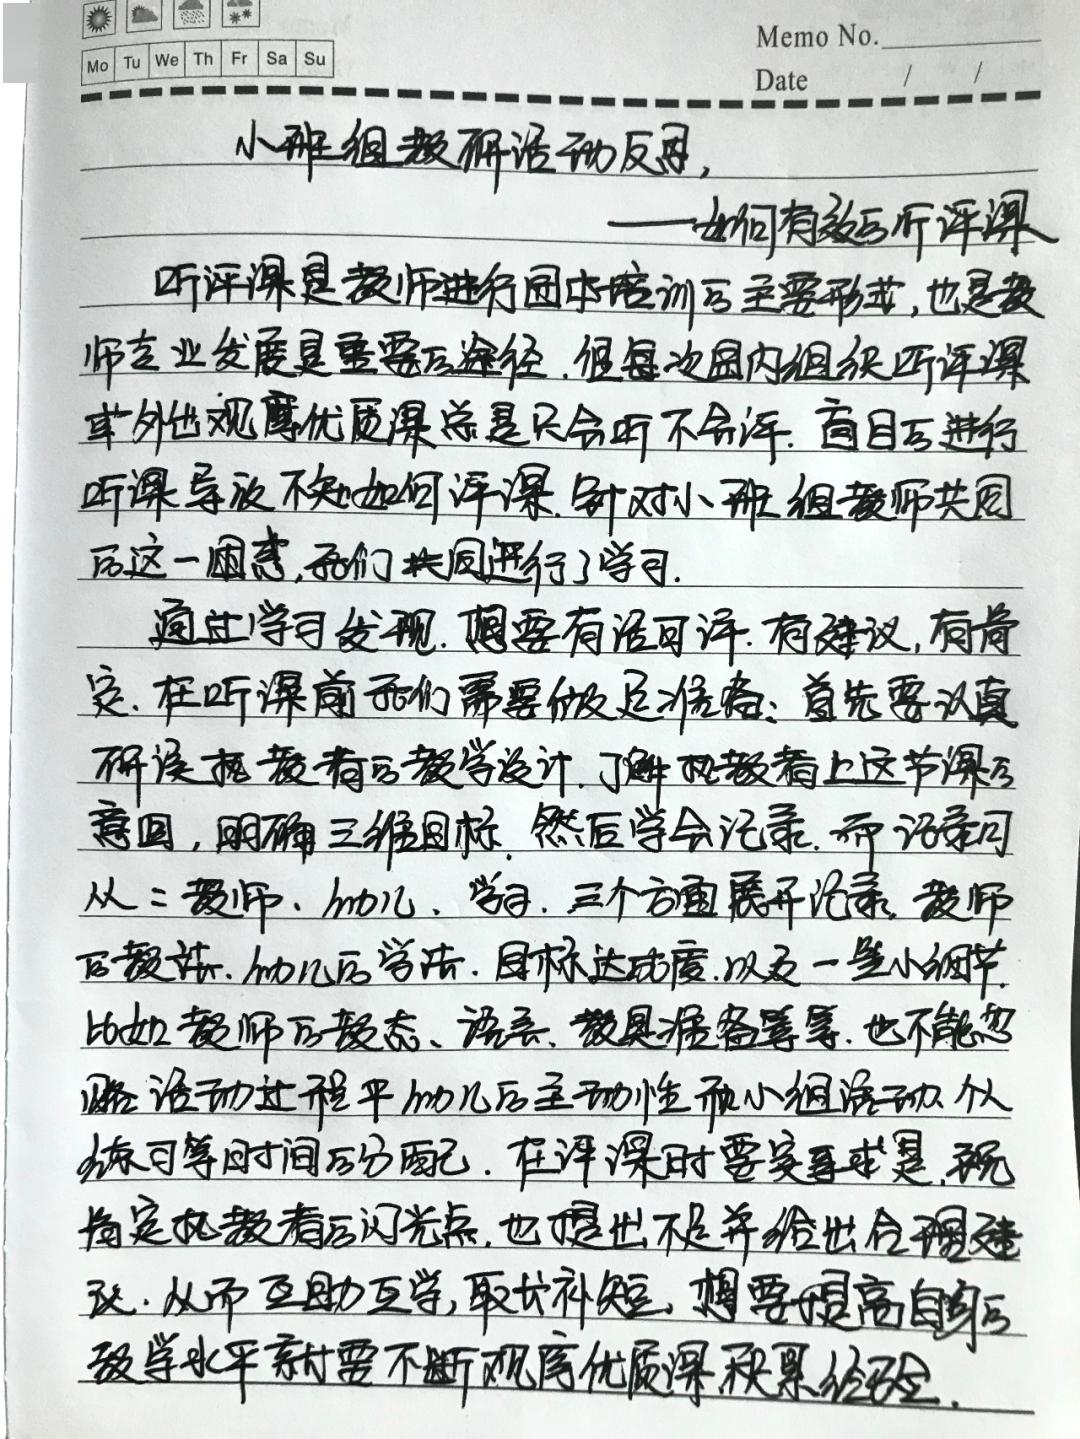 Mo Tu We Th Fr Sa Su
Memo No.
Date / /
小班组教研活动反思,
——如何有效的听评课
听评课是教师进行园本培训的主要形式,也是教
师专业发展是重要的途径.但每次园内组织听评课
或外出观摩优质课总是只会听不会评.盲目的进行
听课导致不知如何评课.针对小班组教师共同
的这一困惑,我们共同进行了学习.
通过学习发现.想要有话可评.有建议,有肯
定.在听课前我们需要做足准备:首先要认真
研读执教者的教学设计.了解执教者上这节课的
意图,明确三维目标.然后学会记录.而记录可
从:教师、幼儿、学习.三个方面展开记录.教师
的教法.幼儿的学法.目标达成度.以及一些小细节.
比如教师的教态、语言、教具准备等等.也不能忽
略活动过程中幼儿的主动性和小组活动、个人
练习等时间的分配.在评课时要实事求是.既
肯定执教者的闪光点.也提出不足并给出合理建
议.从而互助互学,取长补短.想要提高自身的
教学水平就需不断观摩优质课.积累经验.